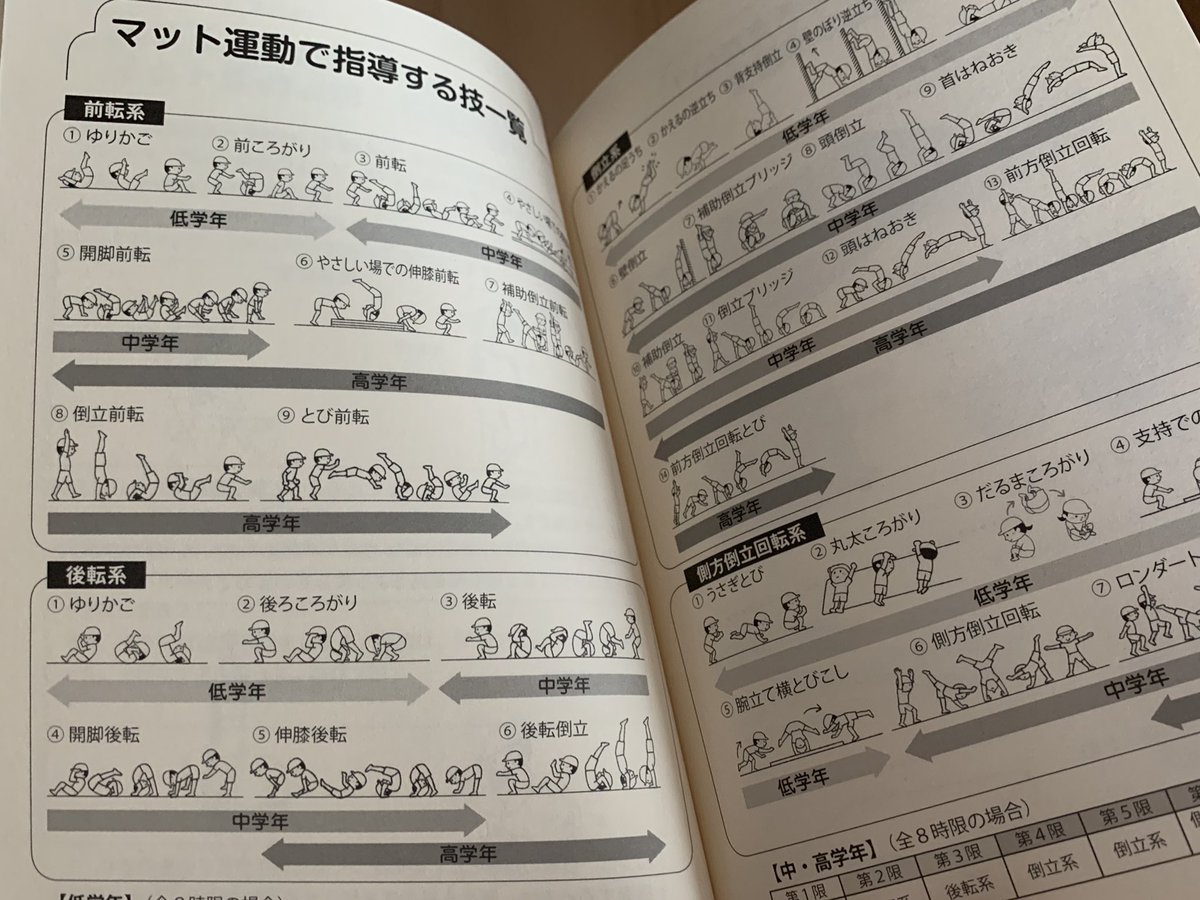 マット運動で指導する技一覧
前転系
① ゆりかご
② 前ころがり
③ 前転
④ やさしい場で
低学年
中学年
⑤ 開脚前転
⑥ やさしい場での伸膝前転
⑦ 補助倒立前転
中学年
高学年
⑧ 倒立前転
⑨ とび前転
高学年
後転系
① ゆりかご
② 後ろころがり
③ 後転
低学年
中学年
④ 開脚後転
⑤ 伸膝後転
⑥ 後転倒立
中学年
高学年
【低学年】(全8時限の場合)
倒立系
① かえるの足うち
② かえるの逆立ち
③ 背支持倒立
④ 壁のぼり逆立ち
低学年
⑥ 壁倒立
⑦ 補助倒立ブリッジ
⑧ 頭倒立
⑨ 首はねおき
中学年
⑩ 補助倒立
⑪ 倒立ブリッジ
⑫ 頭はねおき
⑬ 前方倒立回転
中学年
高学年
⑭ 前方倒立回転とび
高学年
側方倒立回転系
① うさぎとび
② 丸太ころがり
③ だるまころがり
④ 支持での
低学年
⑤ 腕立て横とびこし
⑥ 側方倒立回転
⑦ ロンダート
低学年
中学年
【中・高学年】(全8時限の場合)
第1限 第2限 第3限 第4限 第5限
後転系 倒立系 倒立系